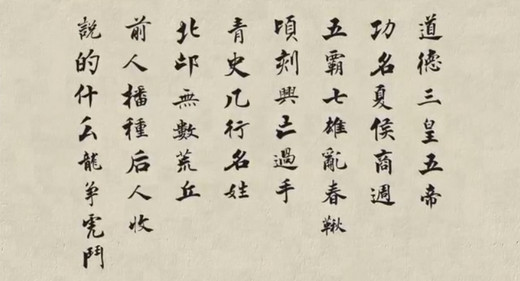 道德三皇五帝
功名夏侯商週
五霸七雄亂春鞦
頃刻興亡過手
青史几行名姓
北邙無數荒丘
前人播種后人收
說的什么龍争虎鬥